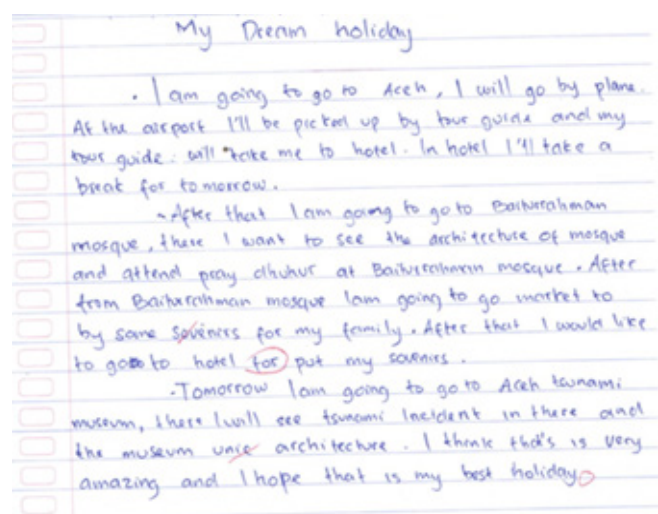 My Dream holiday
. I am going to go to Aceh, I will go by plane.
At the airport I'll be picked up by tour guide and my
tour guide. will take me to hotel. In hotel I'll take a
break for tomorrow.
- After that I am going to go to Baiturrahman
mosque, there I want to see the architecture of mosque
and attend pray dhuhur at Baiturrahman mosque. After
from Baiturrahman mosque Iam going to go market to
by some sovenirs for my family. After that I would like
to go to hotel for put my sovenirs.
. Tomorrow Iam going to go to Aceh tsunami
museum, there I will see tsunami Incident in there and
the museum unic architecture. I think that's is very
amazing and I hope that is my best holiday